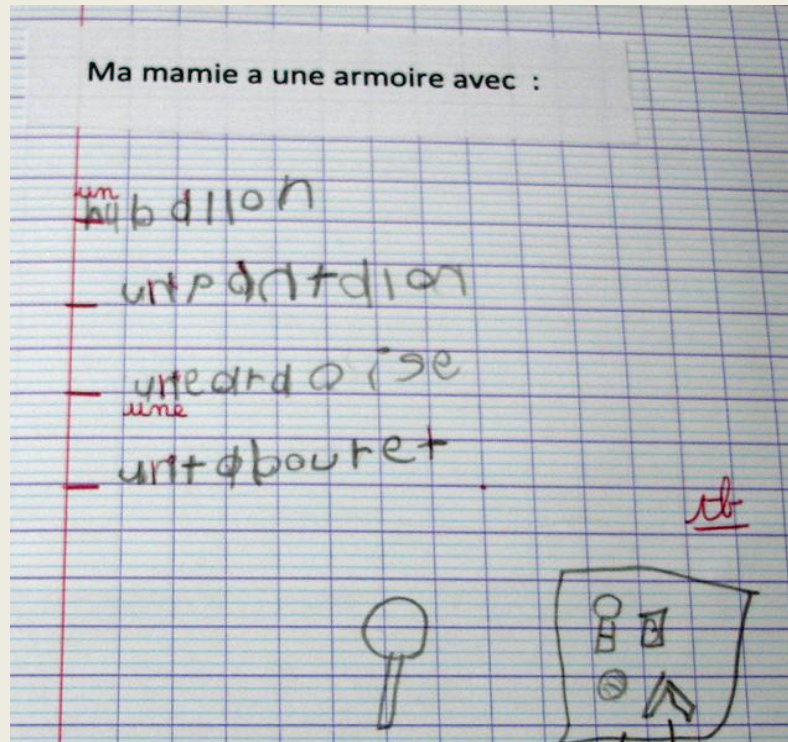 Ma mamie a une armoire avec :
un bdllon
un pantdlon
une ardoise
une
un tabouret
tb